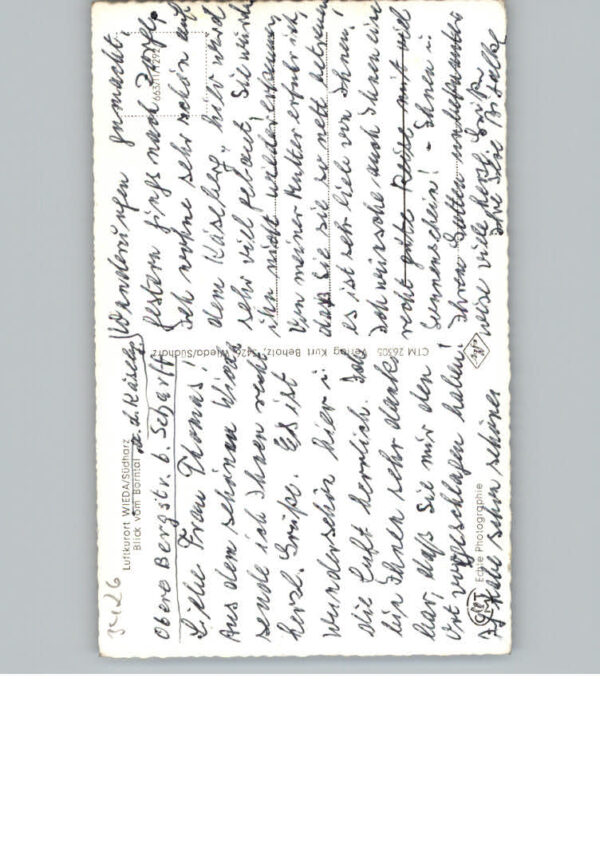 3426
Luftkurort WIEDA/Südharz
Blick vom Börntal
a. d. Käseberg
Obere Bergstr. b. Scharff
Liebe Frau Thomas!
Aus dem schönen Wieda
sende ich Ihnen recht
herzl. Grüße. Es ist
wunderschön hier u.
die Luft herrlich. Ich
bin Ihnen sehr dank
bar, daß Sie mir den
Ort vorgeschlagen haben!
Ich habe schon schöne
CTM Echte Photographie
CTM 26305 Verlag Kurt Beholz, 3426 Wieda/Südharz
663/11/1292
Wanderungen gemacht.
Gestern gings nach Zorge.
Ich wohne sehr schön auf
dem Käseberg, hier wird
sehr viel gebaut. Sie würden
ihn nicht wieder erkennen,
Von meiner Mutter erfuhr ich,
daß Sie sie so nett betreuen,
es ist sehr lieb von Ihnen!
Ich wünsche auch Ihnen eine
recht gute Reise mit viel
Sonnenschein! - Ihnen u.
Ihrem Gatten unbekannter
weise viele herzl. Grüße
Ihre